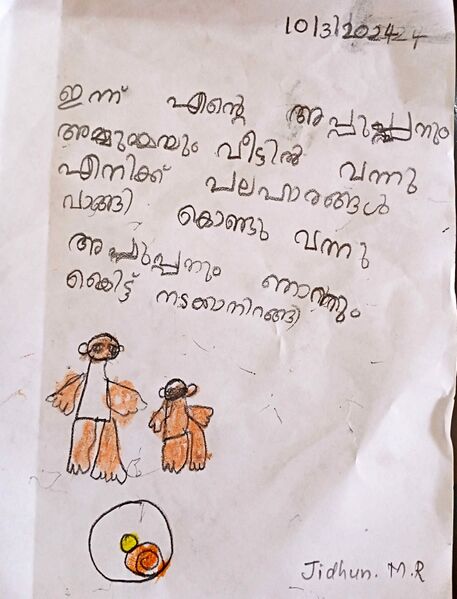 10/3/202424
ഇന്ന് എന്റെ അപ്പുപ്പനും
അമ്മുമ്മയും വീട്ടിൽ വന്നു
എനിക്ക് പലഹാരങ്ങൾ
വാങ്ങി കൊണ്ടു വന്നു
അപ്പുപ്പനും ഞാനും
കെട്ട് നടക്കാനിറങ്ങി
Jidhun. M.R